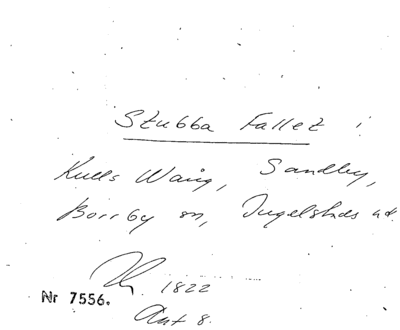 Stubba Fallet i
Kulls Wång, Sandby,
Borrby sn, Ingelstads hd.
1822
Nr 7556.
Akt 8.